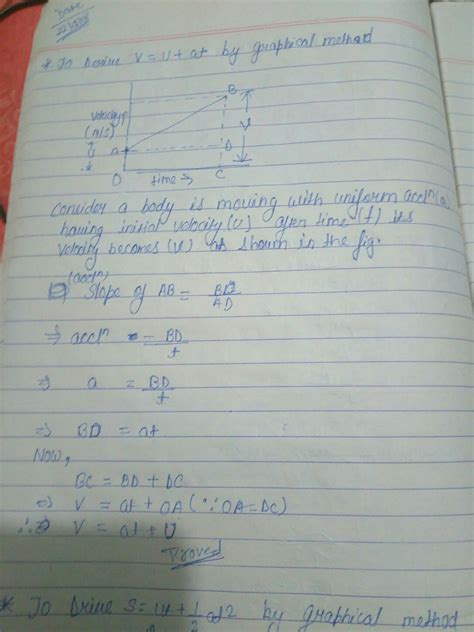 Date
* To Derive V = U + at by graphical method
B
velocity↑
(m/s)
V
A
D
O
time →
C
Consider a body is moving with uniform accln (a)
having initial velocity (u) after time (t) its
velocity becomes (v) as shown in the fig.
(accln)
Slope of AB = BD/AD
⇒ accln = BD/t
⇒ a = BD/t
⇒ BD = at
Now,
BC = BD + DC
⇒ V = at + OA (∵ OA = DC)
∴ ⇒ V = at + U
Proved
* To Drive S = ut + 1/2 at2 by graphical method